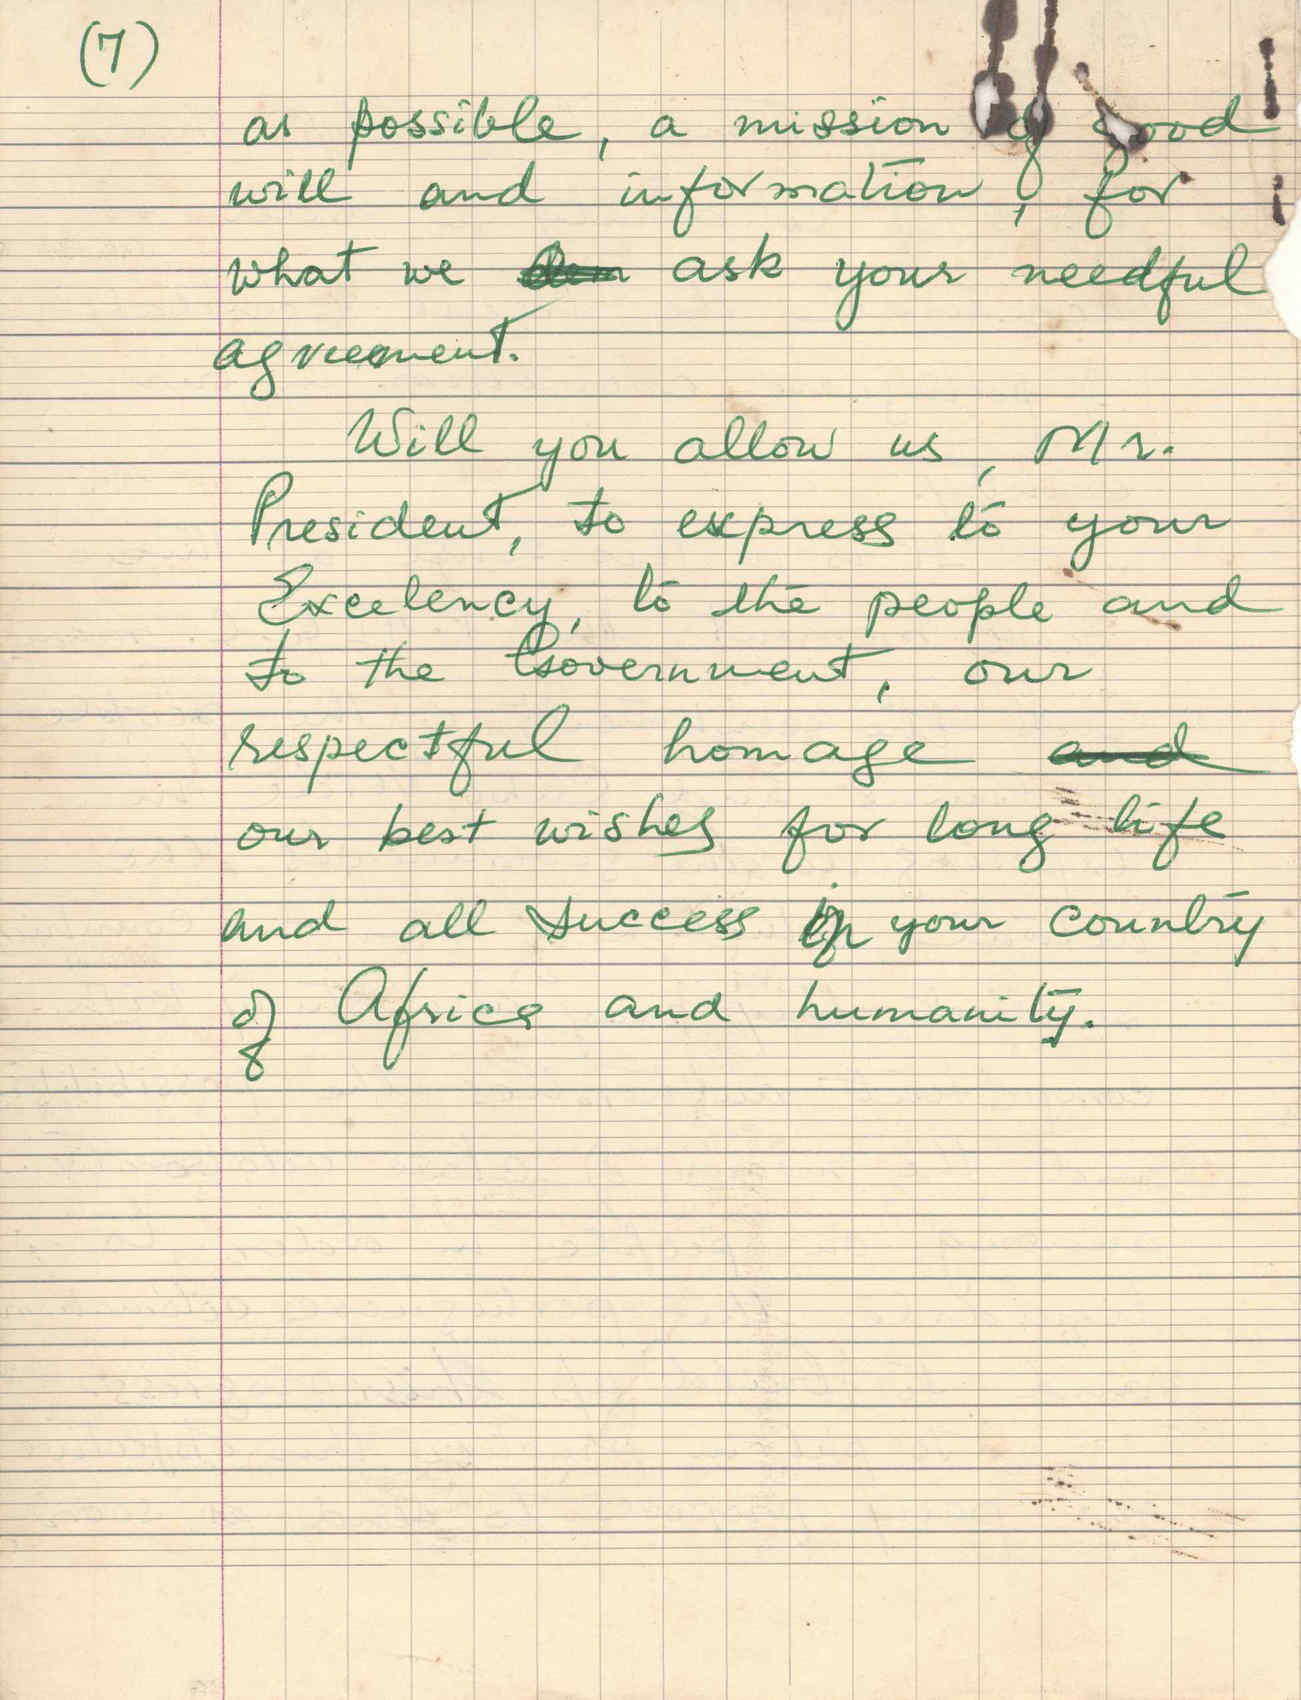 (7)
as possible, a mission of good
will and information, for
what we ask your needful
agreement.
Will you allow us, Mr.
President, to express to your
Excelency, to the people and
to the Government, our
respectful homage and
our best wishes for long life
and all success in your country
of Africa and humanity.